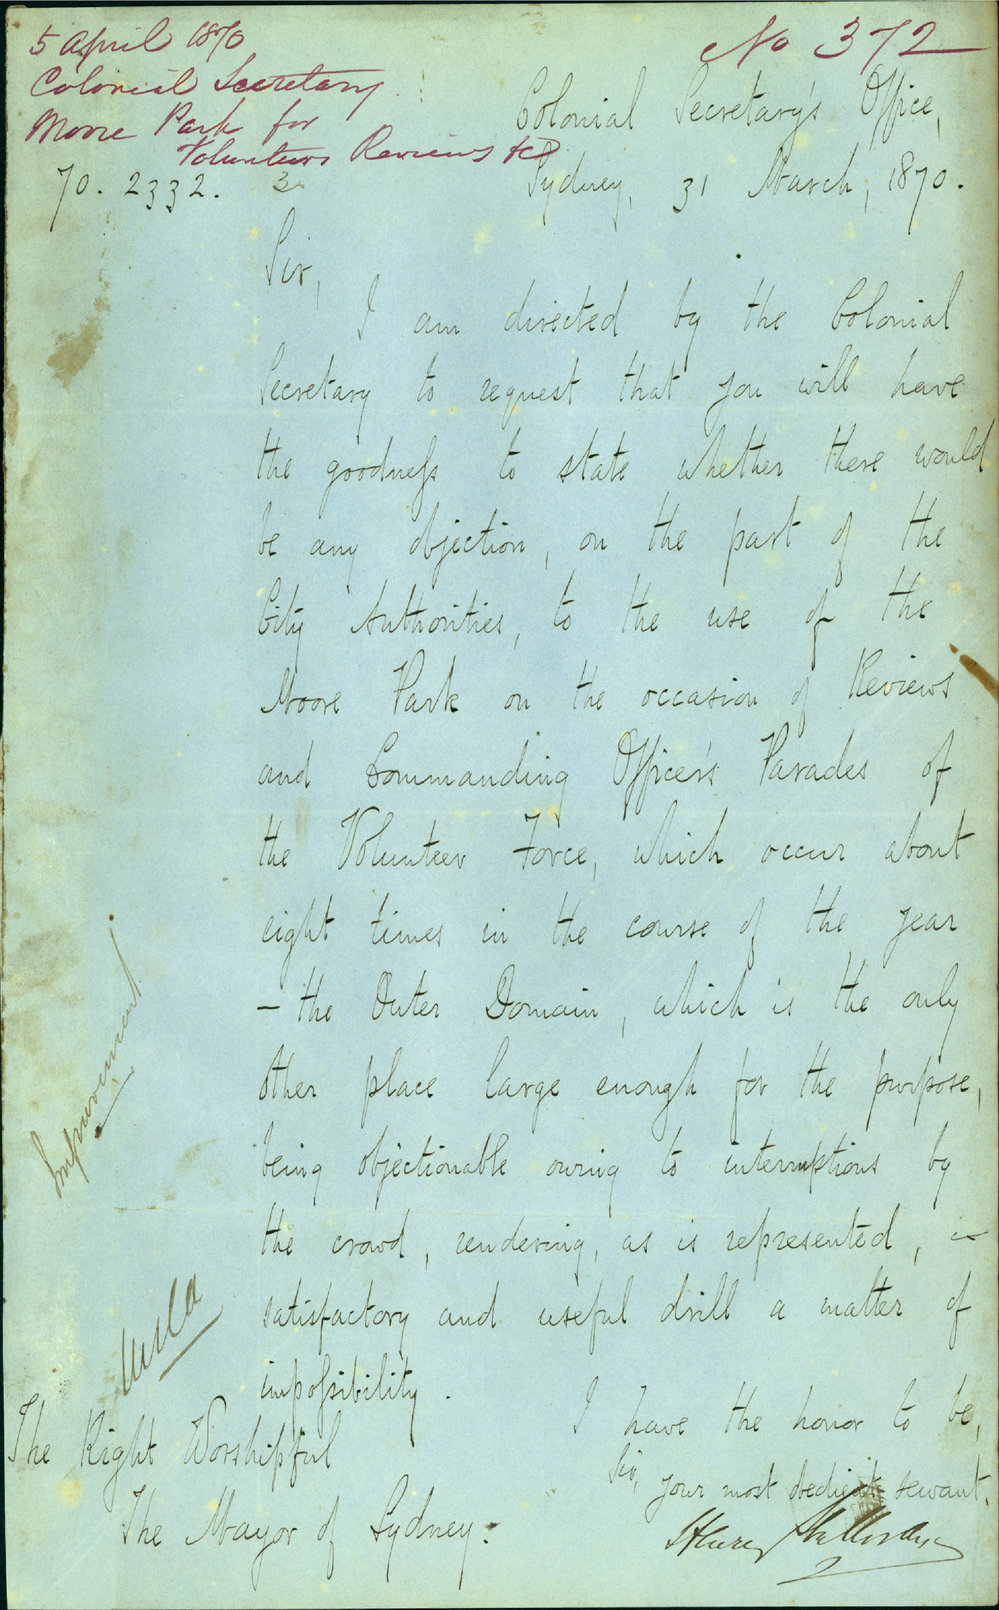 5 April 1870
Colonial Secretary
Moore Park for
Volunteers Reviews &c
No 372
70. 2332. 3
Colonial Secretary's Office,
Sydney, 31 March, 1870.
Sir,
I am directed by the Colonial
Secretary to request that you will have
the goodness to state whether there would
be any objection, on the part of the
City Authorities, to the use of the
Moore Park on the occasion of Reviews
and Commanding Officer's Parades of
the Volunteer Force, which occur about
eight times in the course of the year
– the Outer Domain, which is the only
other place large enough for the purpose,
being objectionable owing to interruptions by
the crowd, rendering, as is represented,
satisfactory and useful drill a matter of
impossibility.
Improvement
I have the honor to be,
Sir,
your most obedient servant,
Henry Halloran
The Right Worshipful
The Mayor of Sydney.